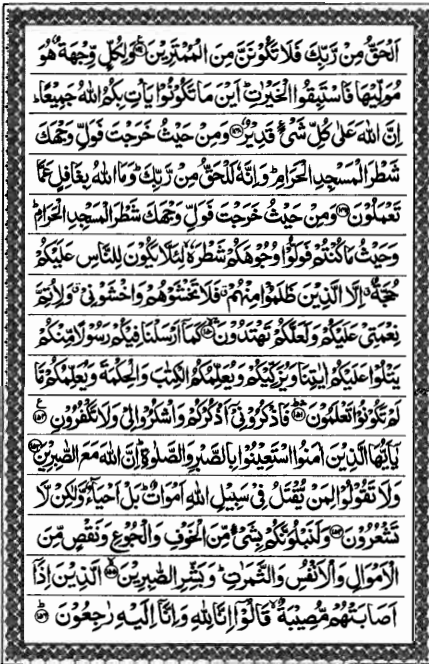 اَلْحَقُّ مِنْ رَّبِّكَ فَلَا تَكُوْنَنَّ مِنَ الْمُمْتَرِيْنَ ۟ وَلِكُلٍّ وِّجْهَةٌ هُوَ
مُوَلِّيْهَا فَاسْتَبِقُوا الْخَيْرٰتِ ؕ اَيْنَ مَا تَكُوْنُوْا يَاْتِ بِكُمُ اللّٰهُ جَمِيْعًا ؕ
اِنَّ اللّٰهَ عَلٰى كُلِّ شَیْءٍ قَدِيْرٌ ۟ وَمِنْ حَيْثُ خَرَجْتَ فَوَلِّ وَجْهَكَ
شَطْرَ الْمَسْجِدِ الْحَرَامِ ؕ وَاِنَّهٗ لَلْحَقُّ مِنْ رَّبِّكَ ؕ وَمَا اللّٰهُ بِغَافِلٍ عَمَّا
تَعْمَلُوْنَ ۟ وَمِنْ حَيْثُ خَرَجْتَ فَوَلِّ وَجْهَكَ شَطْرَ الْمَسْجِدِ الْحَرَامِ ؕ
وَحَيْثُ مَا كُنْتُمْ فَوَلُّوْا وُجُوْهَكُمْ شَطْرَهٗ ۙ لِئَلَّا يَكُوْنَ لِلنَّاسِ عَلَيْكُمْ
حُجَّةٌ ۙ اِلَّا الَّذِيْنَ ظَلَمُوْا مِنْهُمْ ۗ فَلَا تَخْشَوْهُمْ وَاخْشَوْنِیْ ۗ وَلِاُتِمَّ
نِعْمَتِیْ عَلَيْكُمْ وَلَعَلَّكُمْ تَهْتَدُوْنَ ۟ كَمَاۤ اَرْسَلْنَا فِيْكُمْ رَسُوْلًا مِّنْكُمْ
يَتْلُوْا عَلَيْكُمْ اٰيٰتِنَا وَيُزَكِّيْكُمْ وَيُعَلِّمُكُمُ الْكِتٰبَ وَالْحِكْمَةَ وَيُعَلِّمُكُمْ مَّا
لَمْ تَكُوْنُوْا تَعْلَمُوْنَ ۟ فَاذْكُرُوْنِیْۤ اَذْكُرْكُمْ وَاشْكُرُوْا لِیْ وَلَا تَكْفُرُوْنِ ۟
يٰۤاَيُّهَا الَّذِيْنَ اٰمَنُوا اسْتَعِيْنُوْا بِالصَّبْرِ وَالصَّلٰوةِ ؕ اِنَّ اللّٰهَ مَعَ الصّٰبِرِيْنَ ۟
وَلَا تَقُوْلُوْا لِمَنْ يُّقْتَلُ فِیْ سَبِيْلِ اللّٰهِ اَمْوَاتٌ ؕ بَلْ اَحْيَآءٌ وَّلٰكِنْ لَّا
تَشْعُرُوْنَ ۟ وَلَنَبْلُوَنَّكُمْ بِشَیْءٍ مِّنَ الْخَوْفِ وَالْجُوْعِ وَنَقْصٍ مِّنَ
الْاَمْوَالِ وَالْاَنْفُسِ وَالثَّمَرٰتِ ؕ وَبَشِّرِ الصّٰبِرِيْنَ ۟ الَّذِيْنَ اِذَاۤ
اَصَابَتْهُمْ مُّصِيْبَةٌ ۙ قَالُوْۤا اِنَّا لِلّٰهِ وَاِنَّاۤ اِلَيْهِ رٰجِعُوْنَ ۟